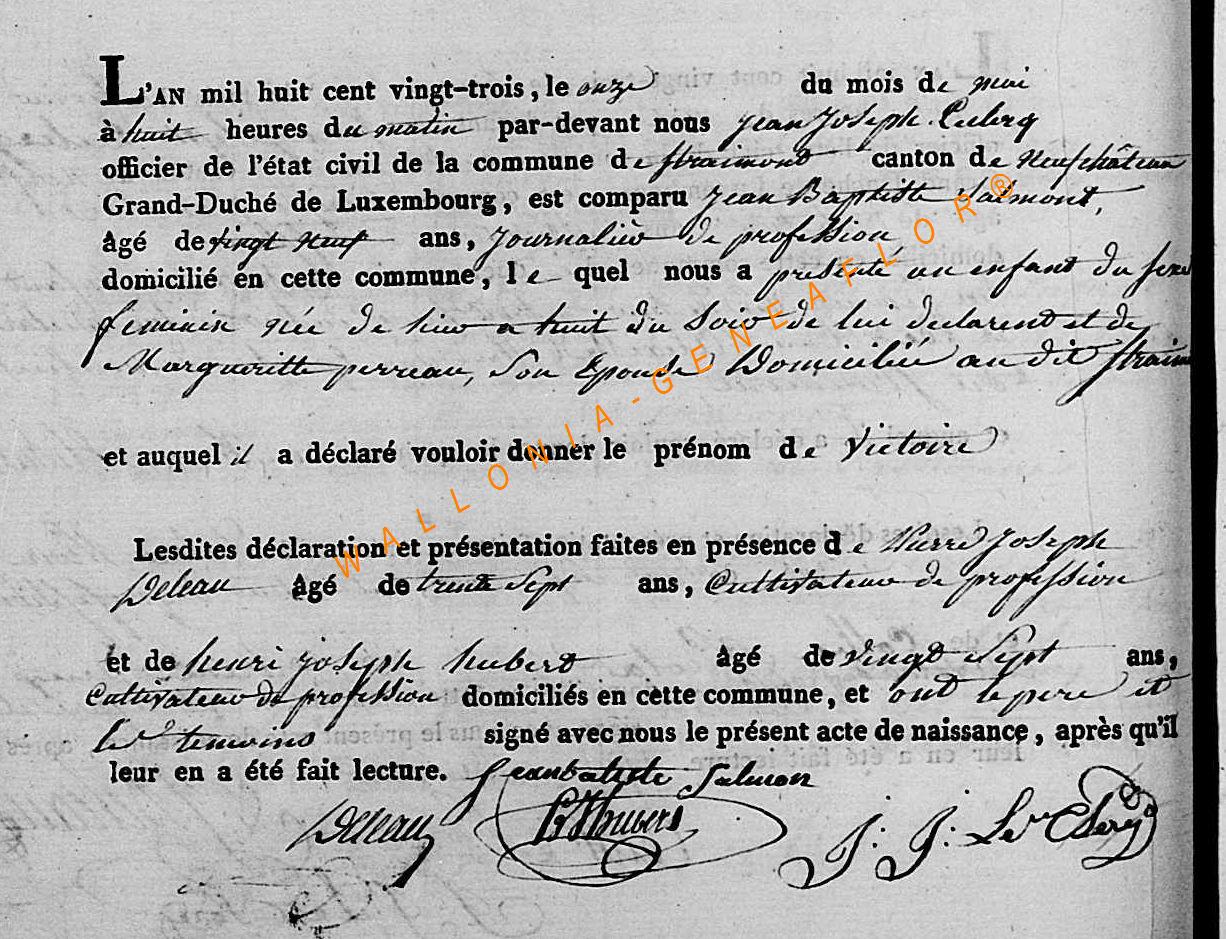 L'AN mil huit cent vingt-trois, le onze du mois de mai
à huit heures du matin par-devant nous Jean Joseph Leclerq
officier de l'état civil de la commune de Straimont canton de Neufchâteau
Grand-Duché de Luxembourg, est comparu Jean Baptiste Salmont,
âgé de vingt neuf ans, Journalier de profession
domicilié en cette commune, le quel nous a présenté un enfant du sexe
feminin née de hier a huit du Soir de lui declarent et de
Margueritte perreau, Son Epouse Domiciliée au dit Straim
et auquel il a déclaré vouloir donner le prénom de Victoire
Lesdites déclaration et présentation faites en présence de Pierre Joseph
Deleau âgé de trente Sept ans, Cultivateur de profession
et de henri joseph hubert âgé de vingt Sept ans,
Cultivateur de profession domiciliés en cette commune, et ont le pere et
les temoins signé avec nous le présent acte de naissance, après qu'il
leur en a été fait lecture. Jean batiste Salmon
Deleau hubert J: J: Le Clerq
WALLONIA-GENEAFLOR®